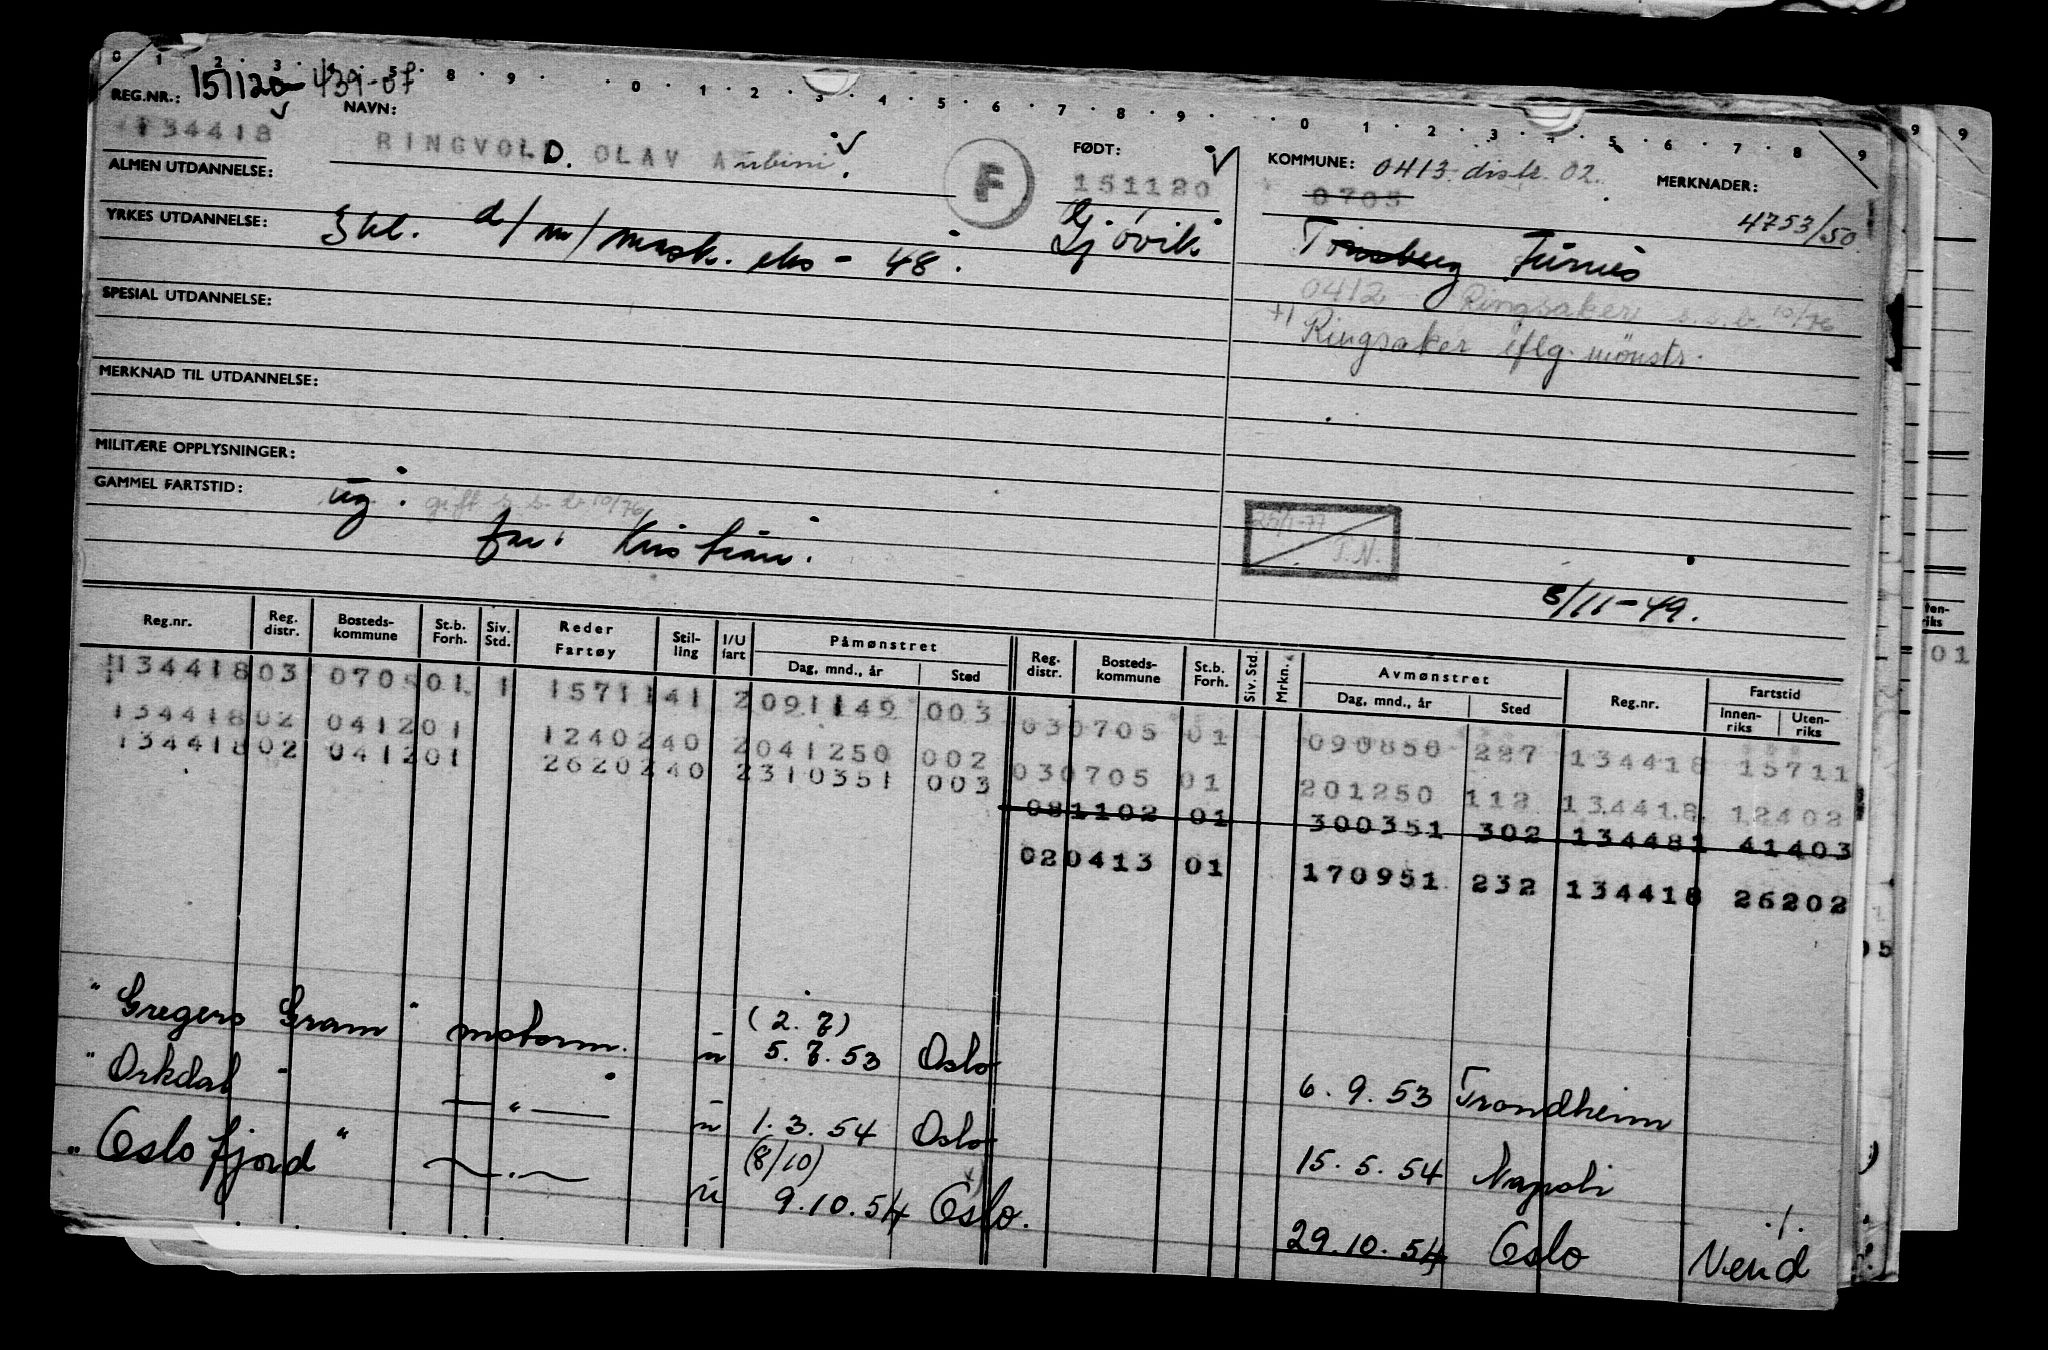 0 1 2 3 8 9 0 1 2 3 4 5 6 7 8 9 0 1 2 3 4 5 6 7 8 9
REG.NR.: 151120 439-07
134418
NAVN:
RINGVOLD. OLAV
FØDT:
151120
Gjøvik
KOMMUNE: 0413 distr. 02.
0705
MERKNADER:
4753/50
Furnes
0412 Ringsaker s.s.b. 10/76
Ringsaker iflg. mönstr.
F
ALMEN UTDANNELSE:
YRKES UTDANNELSE: d/m/mask. eks - 48.
SPESIAL UTDANNELSE:
MERKNAD TIL UTDANNELSE:
MILITÆRE OPPLYSNINGER:
GAMMEL FARTSTID:
ug. gift s.s.b 10/76
far: Kristian.
25/1-77
T.N.
5/11-49.
Reg.nr. Reg. distr. Bosteds-kommune St.b. Forh. Siv. Std. Reder Fartøy Stil-ling I/U fart Påmønstret Dag, mnd., år Sted Reg. distr. Bosteds-kommune St.b. Forh. Siv. Std. Mrkn. Avmønstret Dag, mnd., år Sted Reg.nr. Fartstid Innen-riks Uten-riks
134418 03 0705 01 1 15711 41 2 091149 003 03 0705 01 090850 227 134418 15711
134418 02 0412 01 12402 40 2 041250 002 03 0705 01 201250 112 134418 12402
134418 02 0412 01 26202 40 2 310351 003 08 1102 01 300351 302 134481 41403
02 0413 01 170951 232 134418 26202
(2.7)
"Gregers Gram" motorm. u 5.7.53 Oslo 6.9.53 Trondheim
"Orkdal" — " — u 1.3.54 Oslo 15.5.54 Napoli
(8/10)
"Oslofjord" u 9.10.54 Oslo. 29.10.54 Oslo
Vend